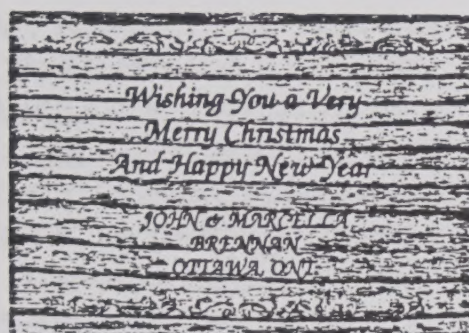 Wishing You a Very
Merry Christmas
And Happy New Year
JOHN & MARCELLA
BRENNAN
OTTAWA, ONT.